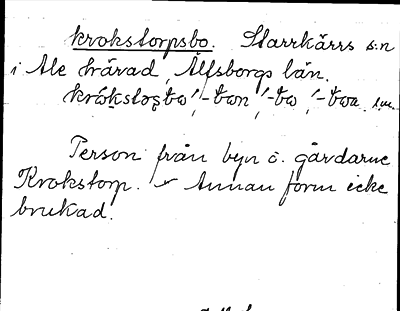 krokstorpsbo. Starrkärrs s:n
i Ale härad, Älfsborgs län.
Person från byn o. gårdarne
Krokstorp. Annan form icke
brukad.